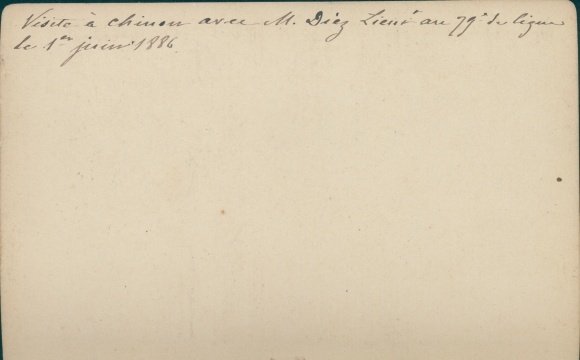 Visite à Chinon avec M. Diéz Lieut au 79e de ligne
le 1er juin 1886